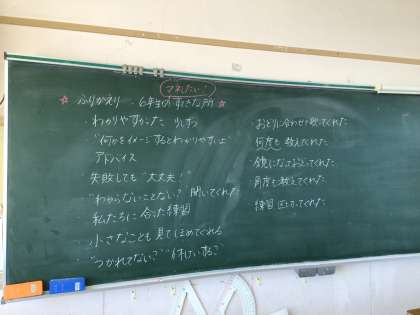 マネしたい!
☆ ふりかえり 6年生のすてきな所 ☆
・わかりやすかった
・"何かをイメージするとわかりやすいよ"
アドバイス
・失敗しても"大丈夫!"
・"わからないことない?"聞いてくれた
・私たちに合った練習
・小さなことも見てほめてくれる
・"つかれてない?"
・おどりに合わせて歌ってくれた
・何度も教えてくれた
・鏡になっておどってくれた
・角度も教えてくれた
・練習 してくれた